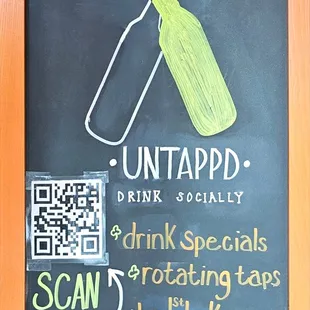 • UNTAPPD •
DRINK SOCIALLY
& drink specials
& rotating taps
SCAN
1st